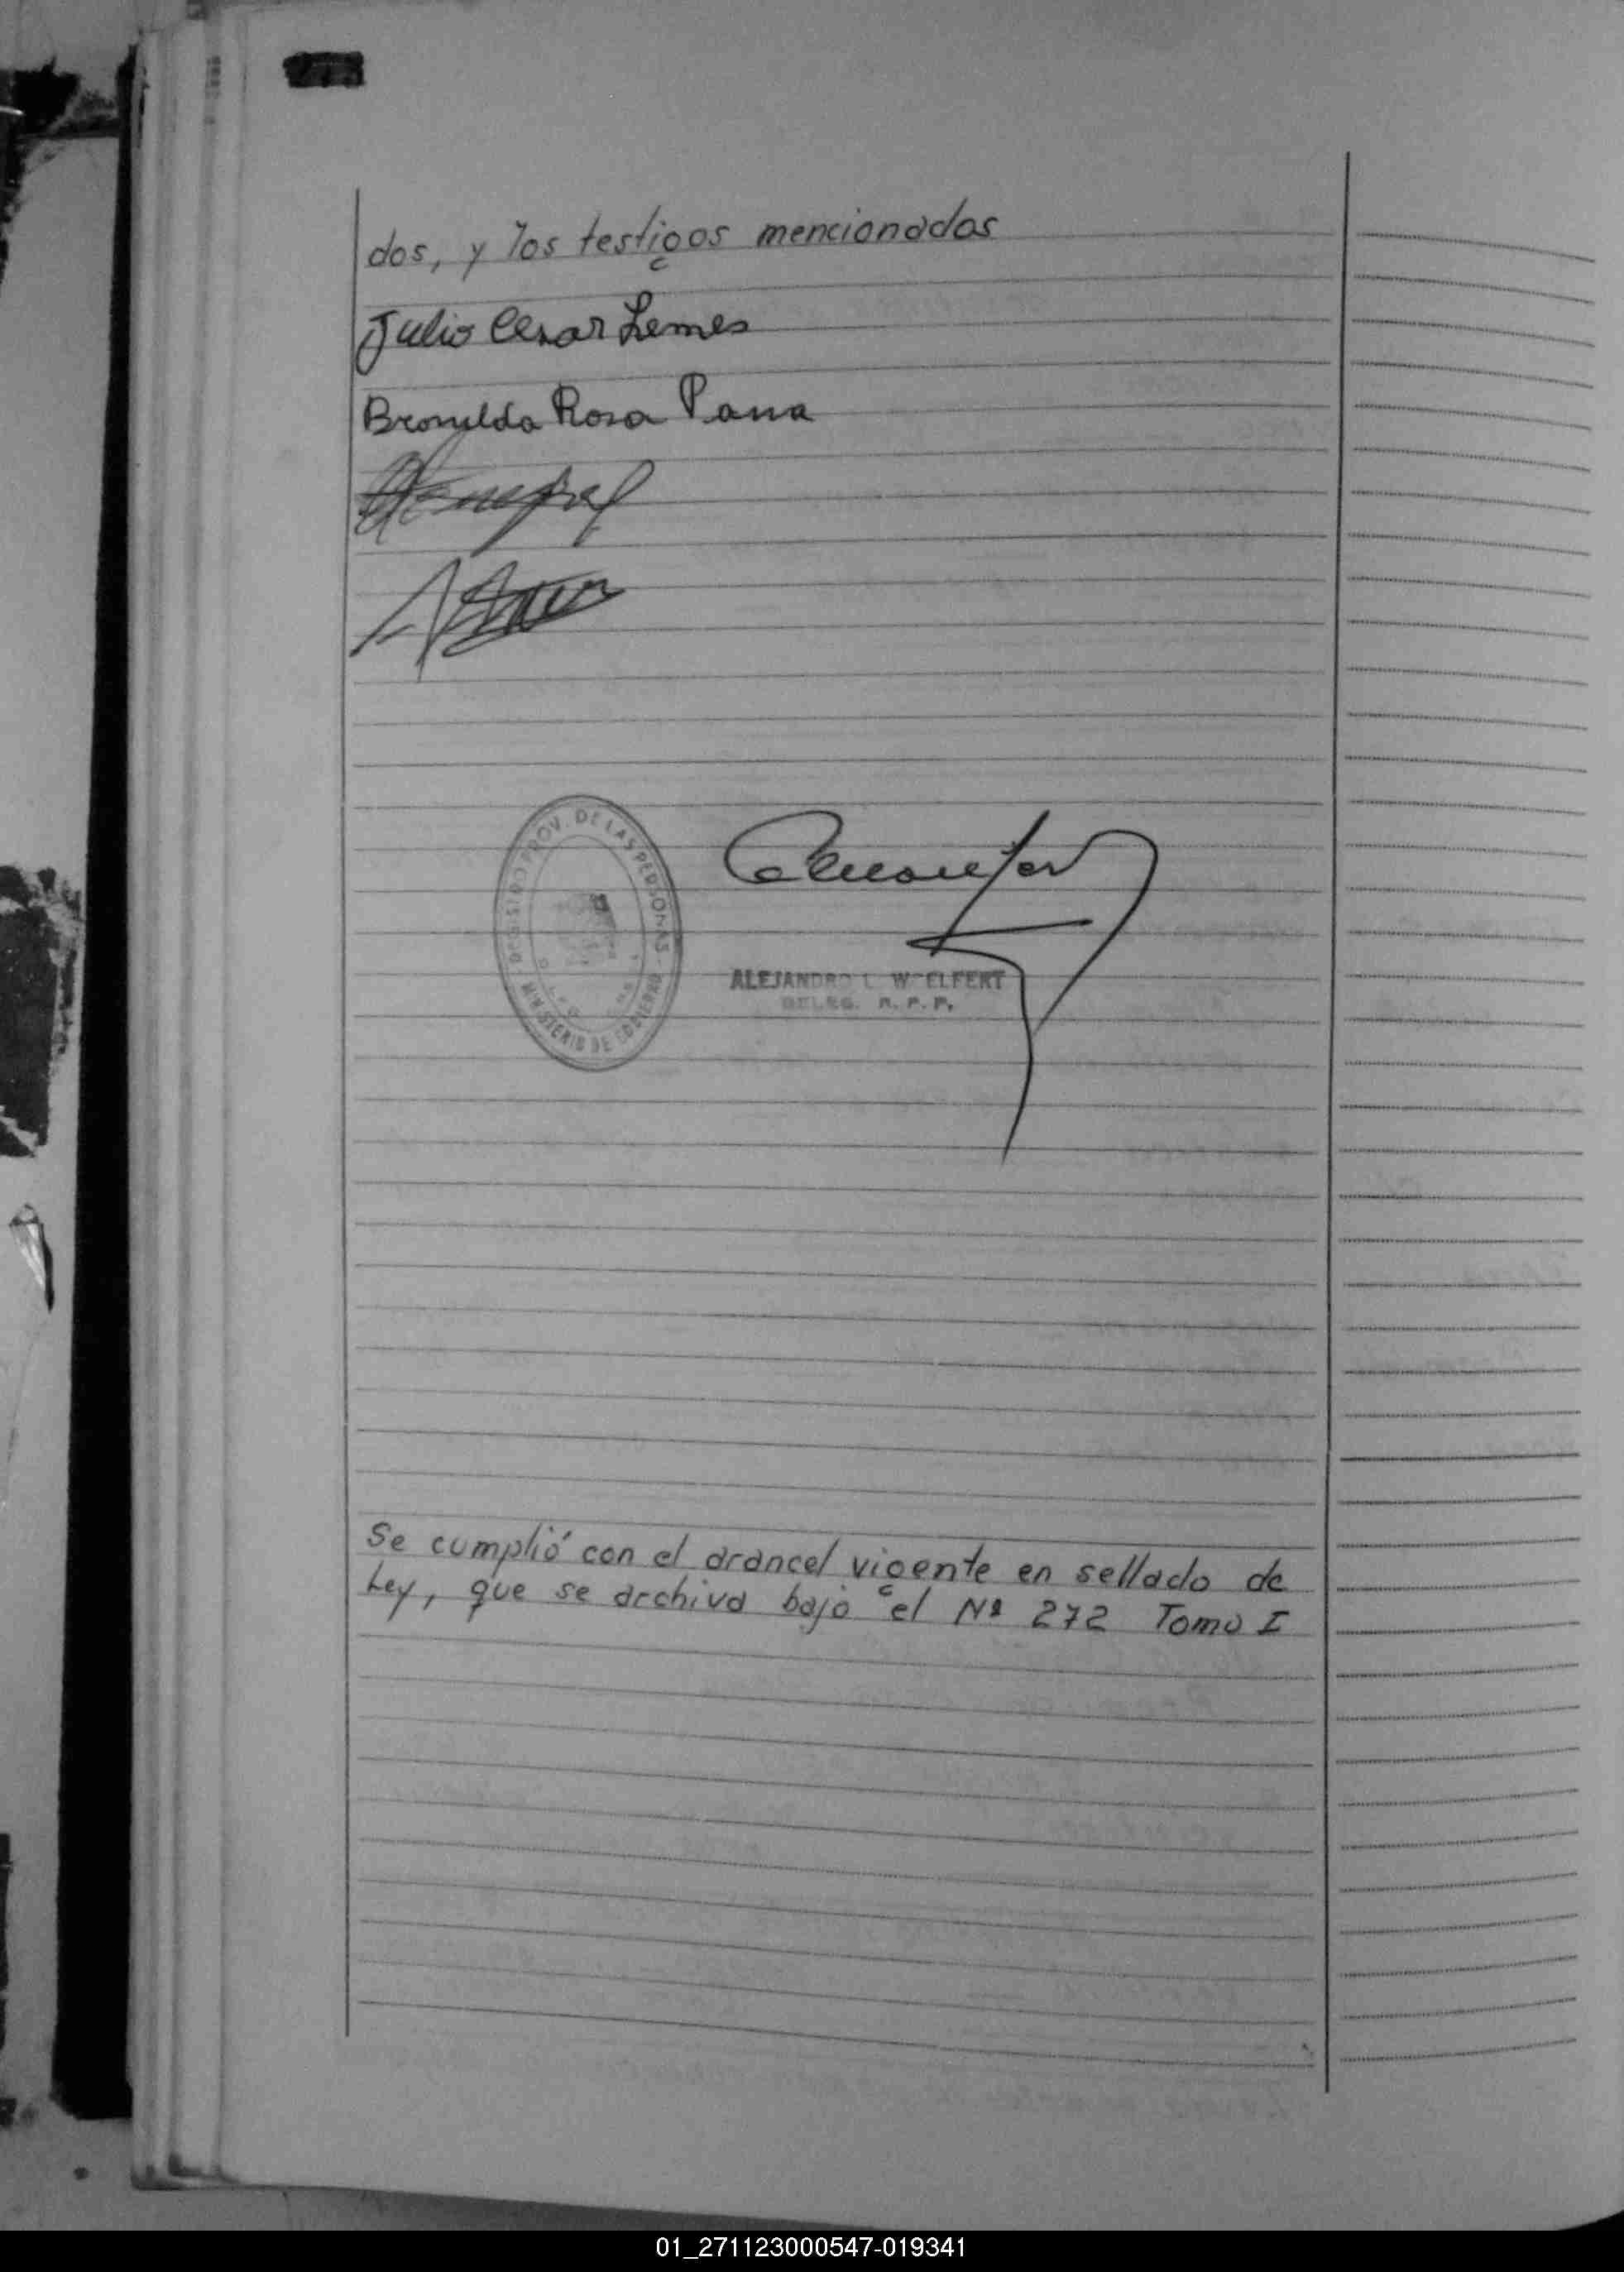 dos, y los testigos mencionados
Julio Cesar Lemes
Bronilda Rosa Panna
REGISTRO PROV. DE LAS PERSONAS
MINISTERIO DE GOBIERNO
ALEJANDRO L. WOELFERT
DELEG. R. P. P.
Se cumplió con el arancel vigente en sellado de
Ley, que se archiva bajo el Nº 272 Tomo I
01_271123000547-019341